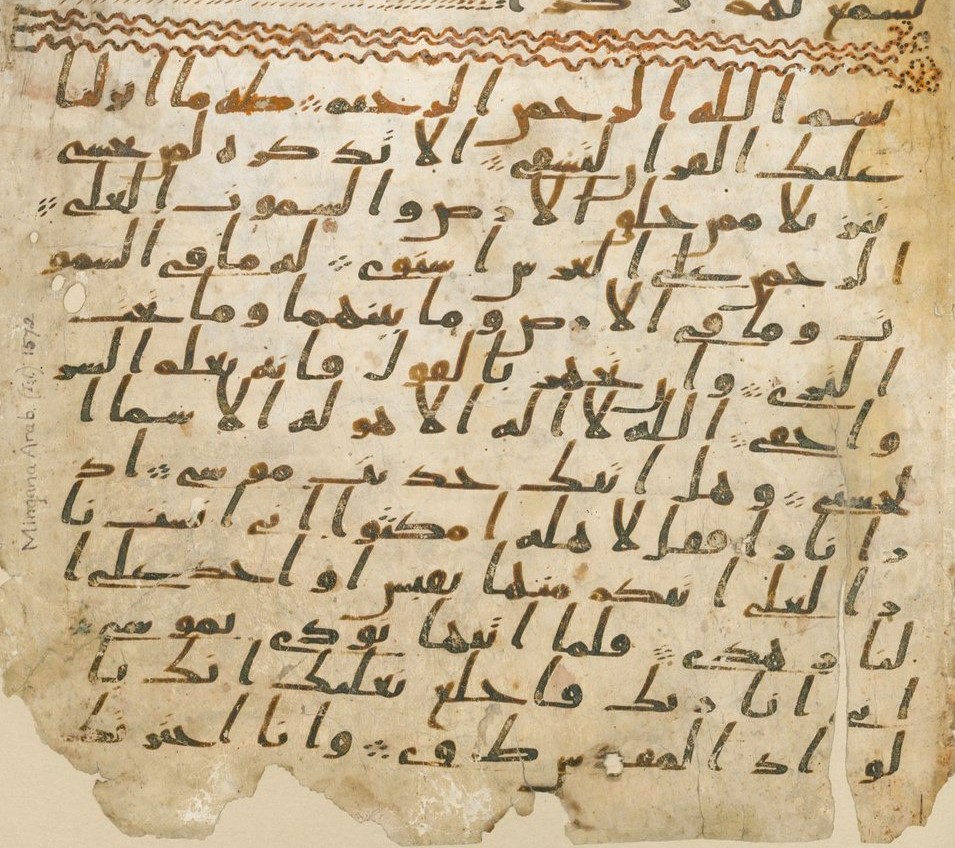 تسمع لهم ركزا
بسم الله الرحمن الرحيم طه ما انزلنا
عليك القران لتشقى الا تذكرة لمن يخشى
تنزيلا ممن خلق الارض والسموت العلى
الرحمن على العرش استوى له ما في السمو
ت وما في الارض وما بينهما وما تحت
الثرى وان تجهر بالقول فانه يعلم السر
واخفى الله لا اله الا هو له الاسما ا
لحسنى وهل اتيك حديث موسى اذ
را نارا فقل لاهله امكثوا اني انست نا
را لعلي اتيكم منها بقبس او اجد على ا
لنار هدى فلما اتيها نودي يموسى
اني انا ربك فاخلع نعليك انك با
لواد المقدس طوى وانا اخترتك
Mingana Arab. (Isl.) 1572